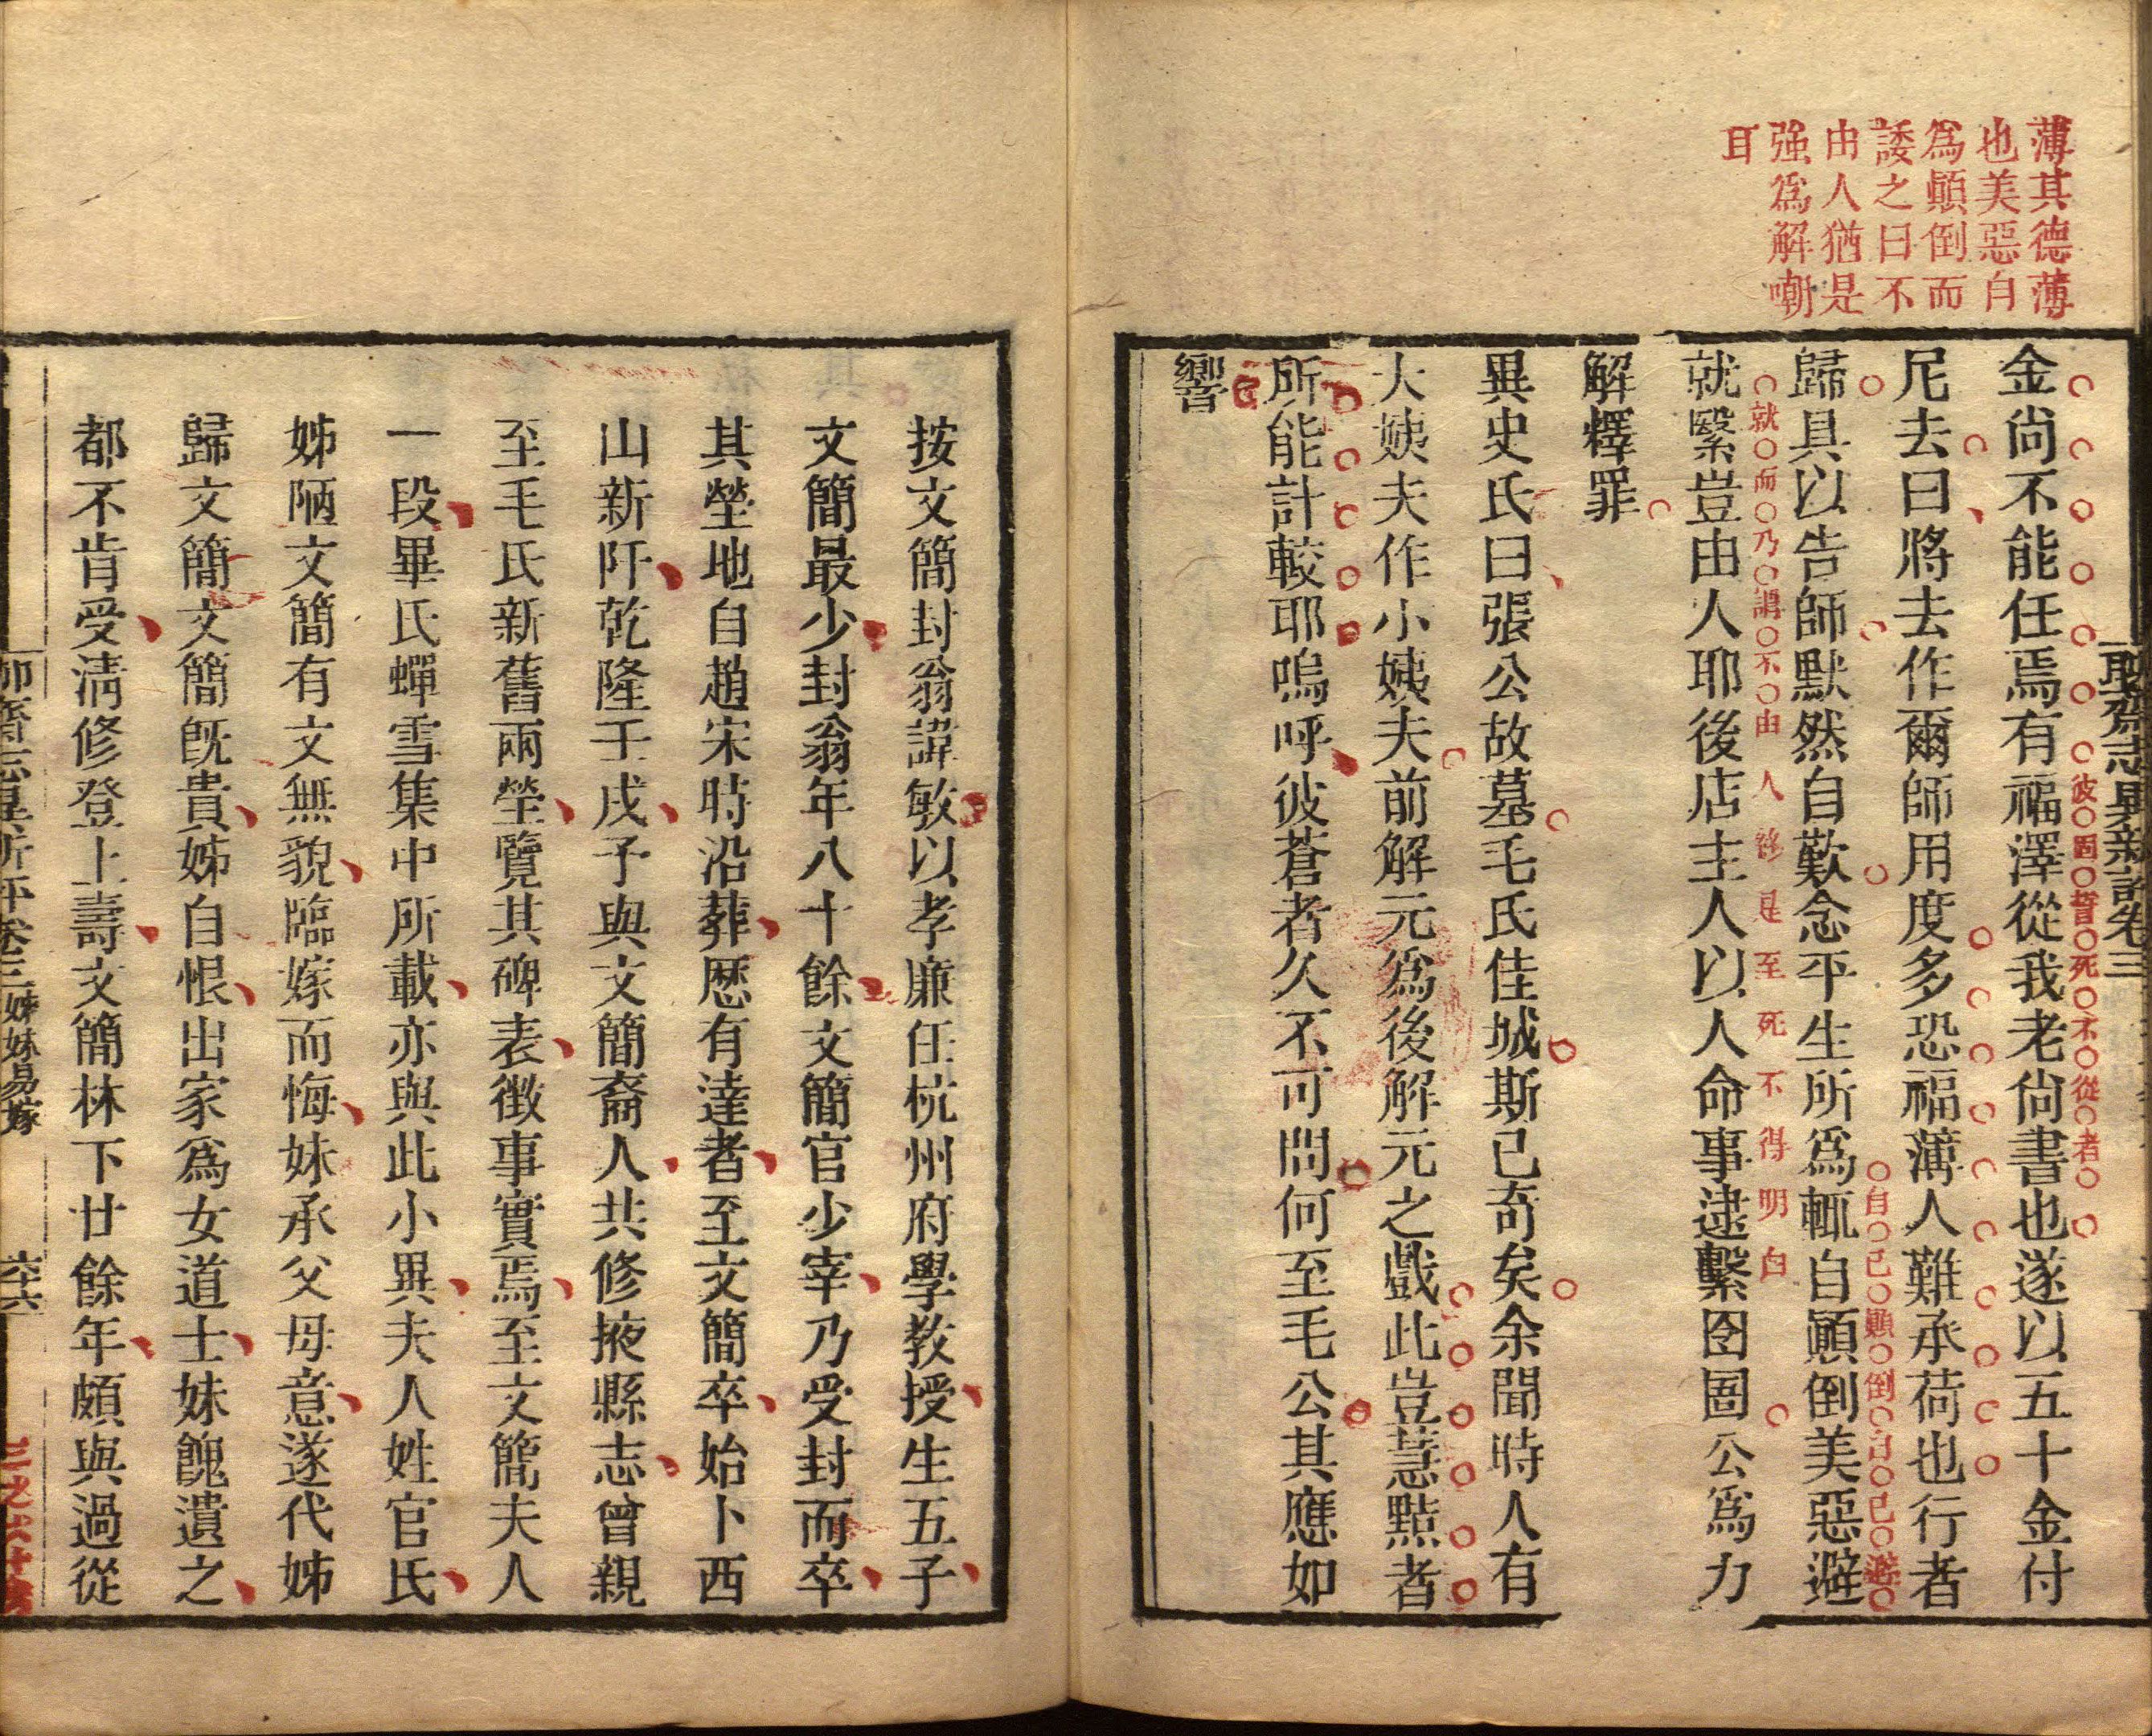 薄其德薄
也美惡自
爲顚倒而
諉之曰不
由人猶是
强爲解嘲
耳
聊齋志異新評卷三
彼固誓死不從者
金尙不能任焉有福澤從我老尙書也遂以五十金付
尼去曰將去作爾師用度多恐福薄人難承荷也行者
自己顚倒自己避
歸具以告師默然自歎念平生所爲輒自顚倒美惡避
就而乃謂不由人豁是至死不得明白
就繄豈由人耶後店主人以人命事逮繫囹圄公爲力
解釋罪
異史氏曰張公故墓毛氏佳城斯已奇矣余聞時人有
大姨夫作小姨夫前解元爲後解元之戲此豈慧黠者
所能計較耶嗚呼彼蒼者久不可問何至毛公其應如
響
按文簡封翁諱敏以孝廉任杭州府學敎授生五子
文簡最少封翁年八十餘文簡官少宰乃受封而卒
其塋地自趙宋時沿葬歷有達者至文簡卒始卜西
山新阡乾隆壬戌予與文簡裔人共修掖縣志曾親
至毛氏新舊兩塋覽其碑表徵事實焉至文簡夫人
一段畢氏蟬雪集中所載亦與此小異夫人姓官氏
姊陋文簡有文無貌臨嫁而悔妹承父母意遂代姊
歸文簡文簡旣貴姊自恨出家爲女道士妹餽遺之
都不肯受淸修登上壽文簡林下廿餘年頗與過從
聊齋志異新評卷三 姊妹易嫁
六十六